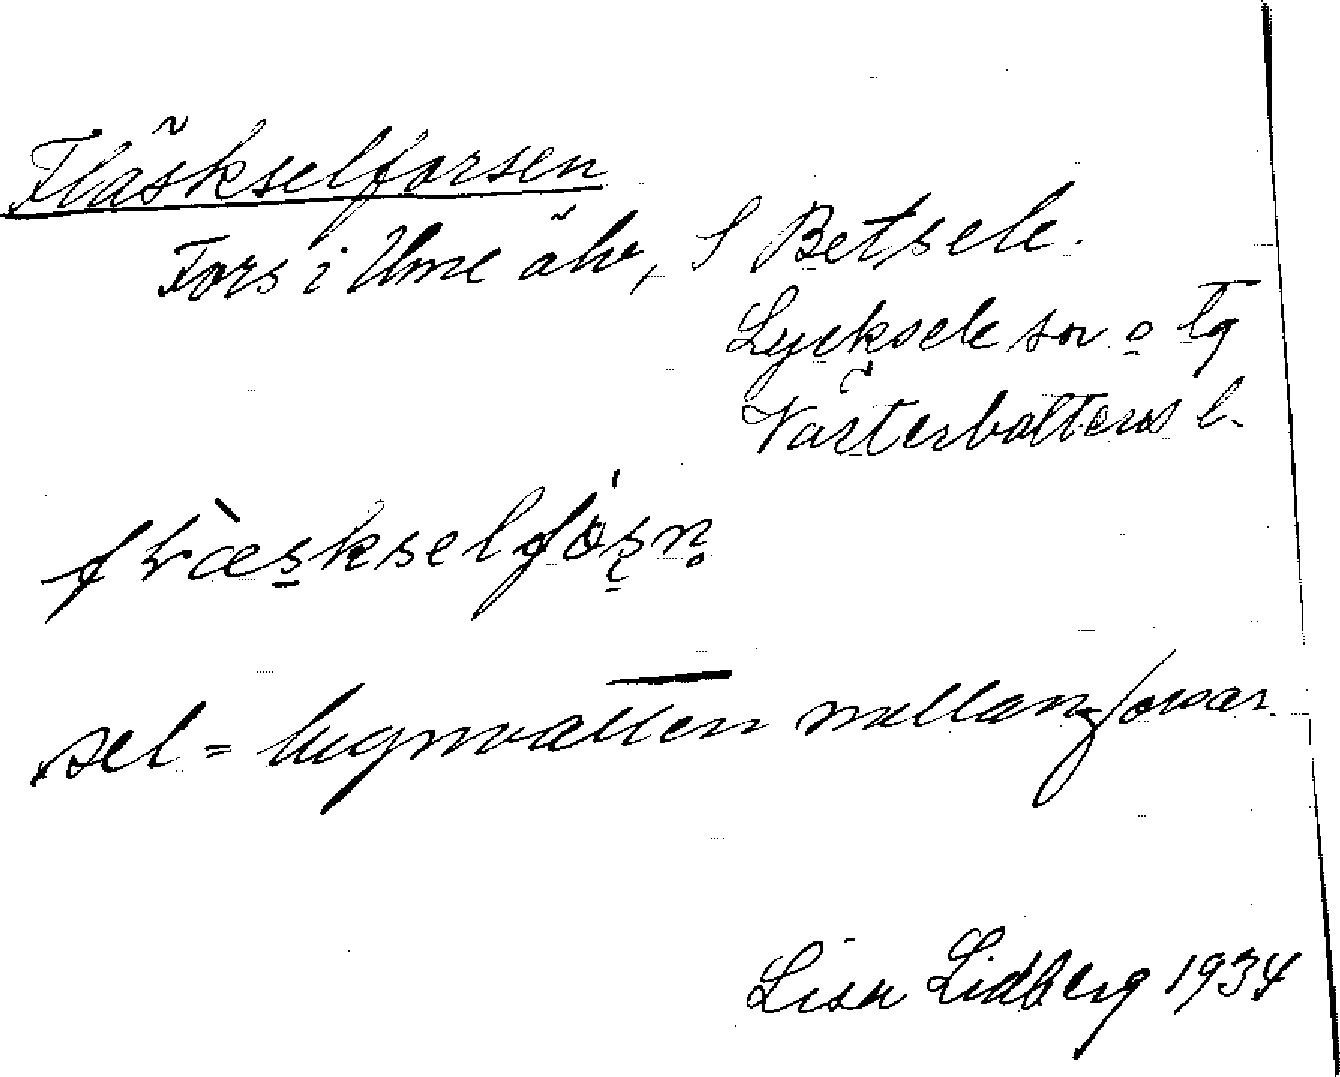 Fläskselforsen
Fors i Ume älv, S Betsele.
Lycksele sn o tg
Västerbottens l.
sel = lugnvatten mellan forsar.
Lisa Lidberg 1934